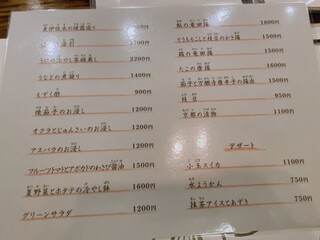 うにの冷やし茶碗蒸し 2200円
うなぎの煮凍り 1400円
もずく酢 900円
焼茄子のお浸し 1200円
オクラとじゅんさいのお浸し 1200円
アスパラのお浸し 1200円
フルーツトマトとアボカドのわさび醤油 1500円
夏野菜とホタテの冷やし鉢 1600円
グリーンサラダ 1200円
の竜田揚 1800円
とうもろこしと枝豆のかき揚 1500円
鶏の竜田揚 1500円
たこの唐揚 1600円
茄子と万願寺唐辛子の揚出 1500円
枝豆 950円
京都の漬物 1100円
デザート
小玉スイカ 1100円
水ようかん 750円
抹茶アイスとあずき 750円